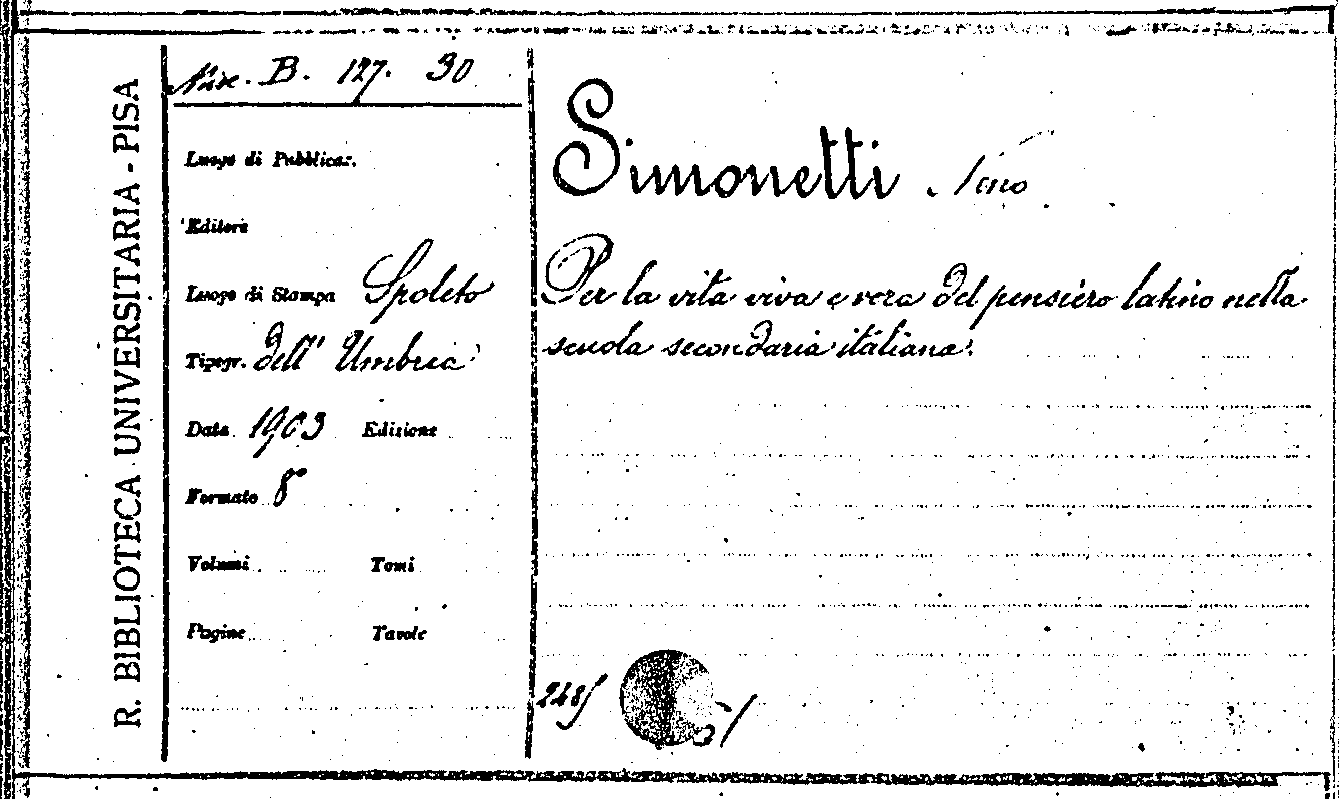 R. BIBLIOTECA UNIVERSITARIA - PISA
Misc. B. 127. 30
Luogo di Pubblicaz.
Editore
Luogo di Stampa Spoleto
Tipogr. dell' Umbria
Data 1903 Edizione
Formato 8°
Volumi Tomi
Pagine Tavole
Simonetti Nino
Per la vita viva e vera del pensiero latino nella
scuola secondaria italiana.